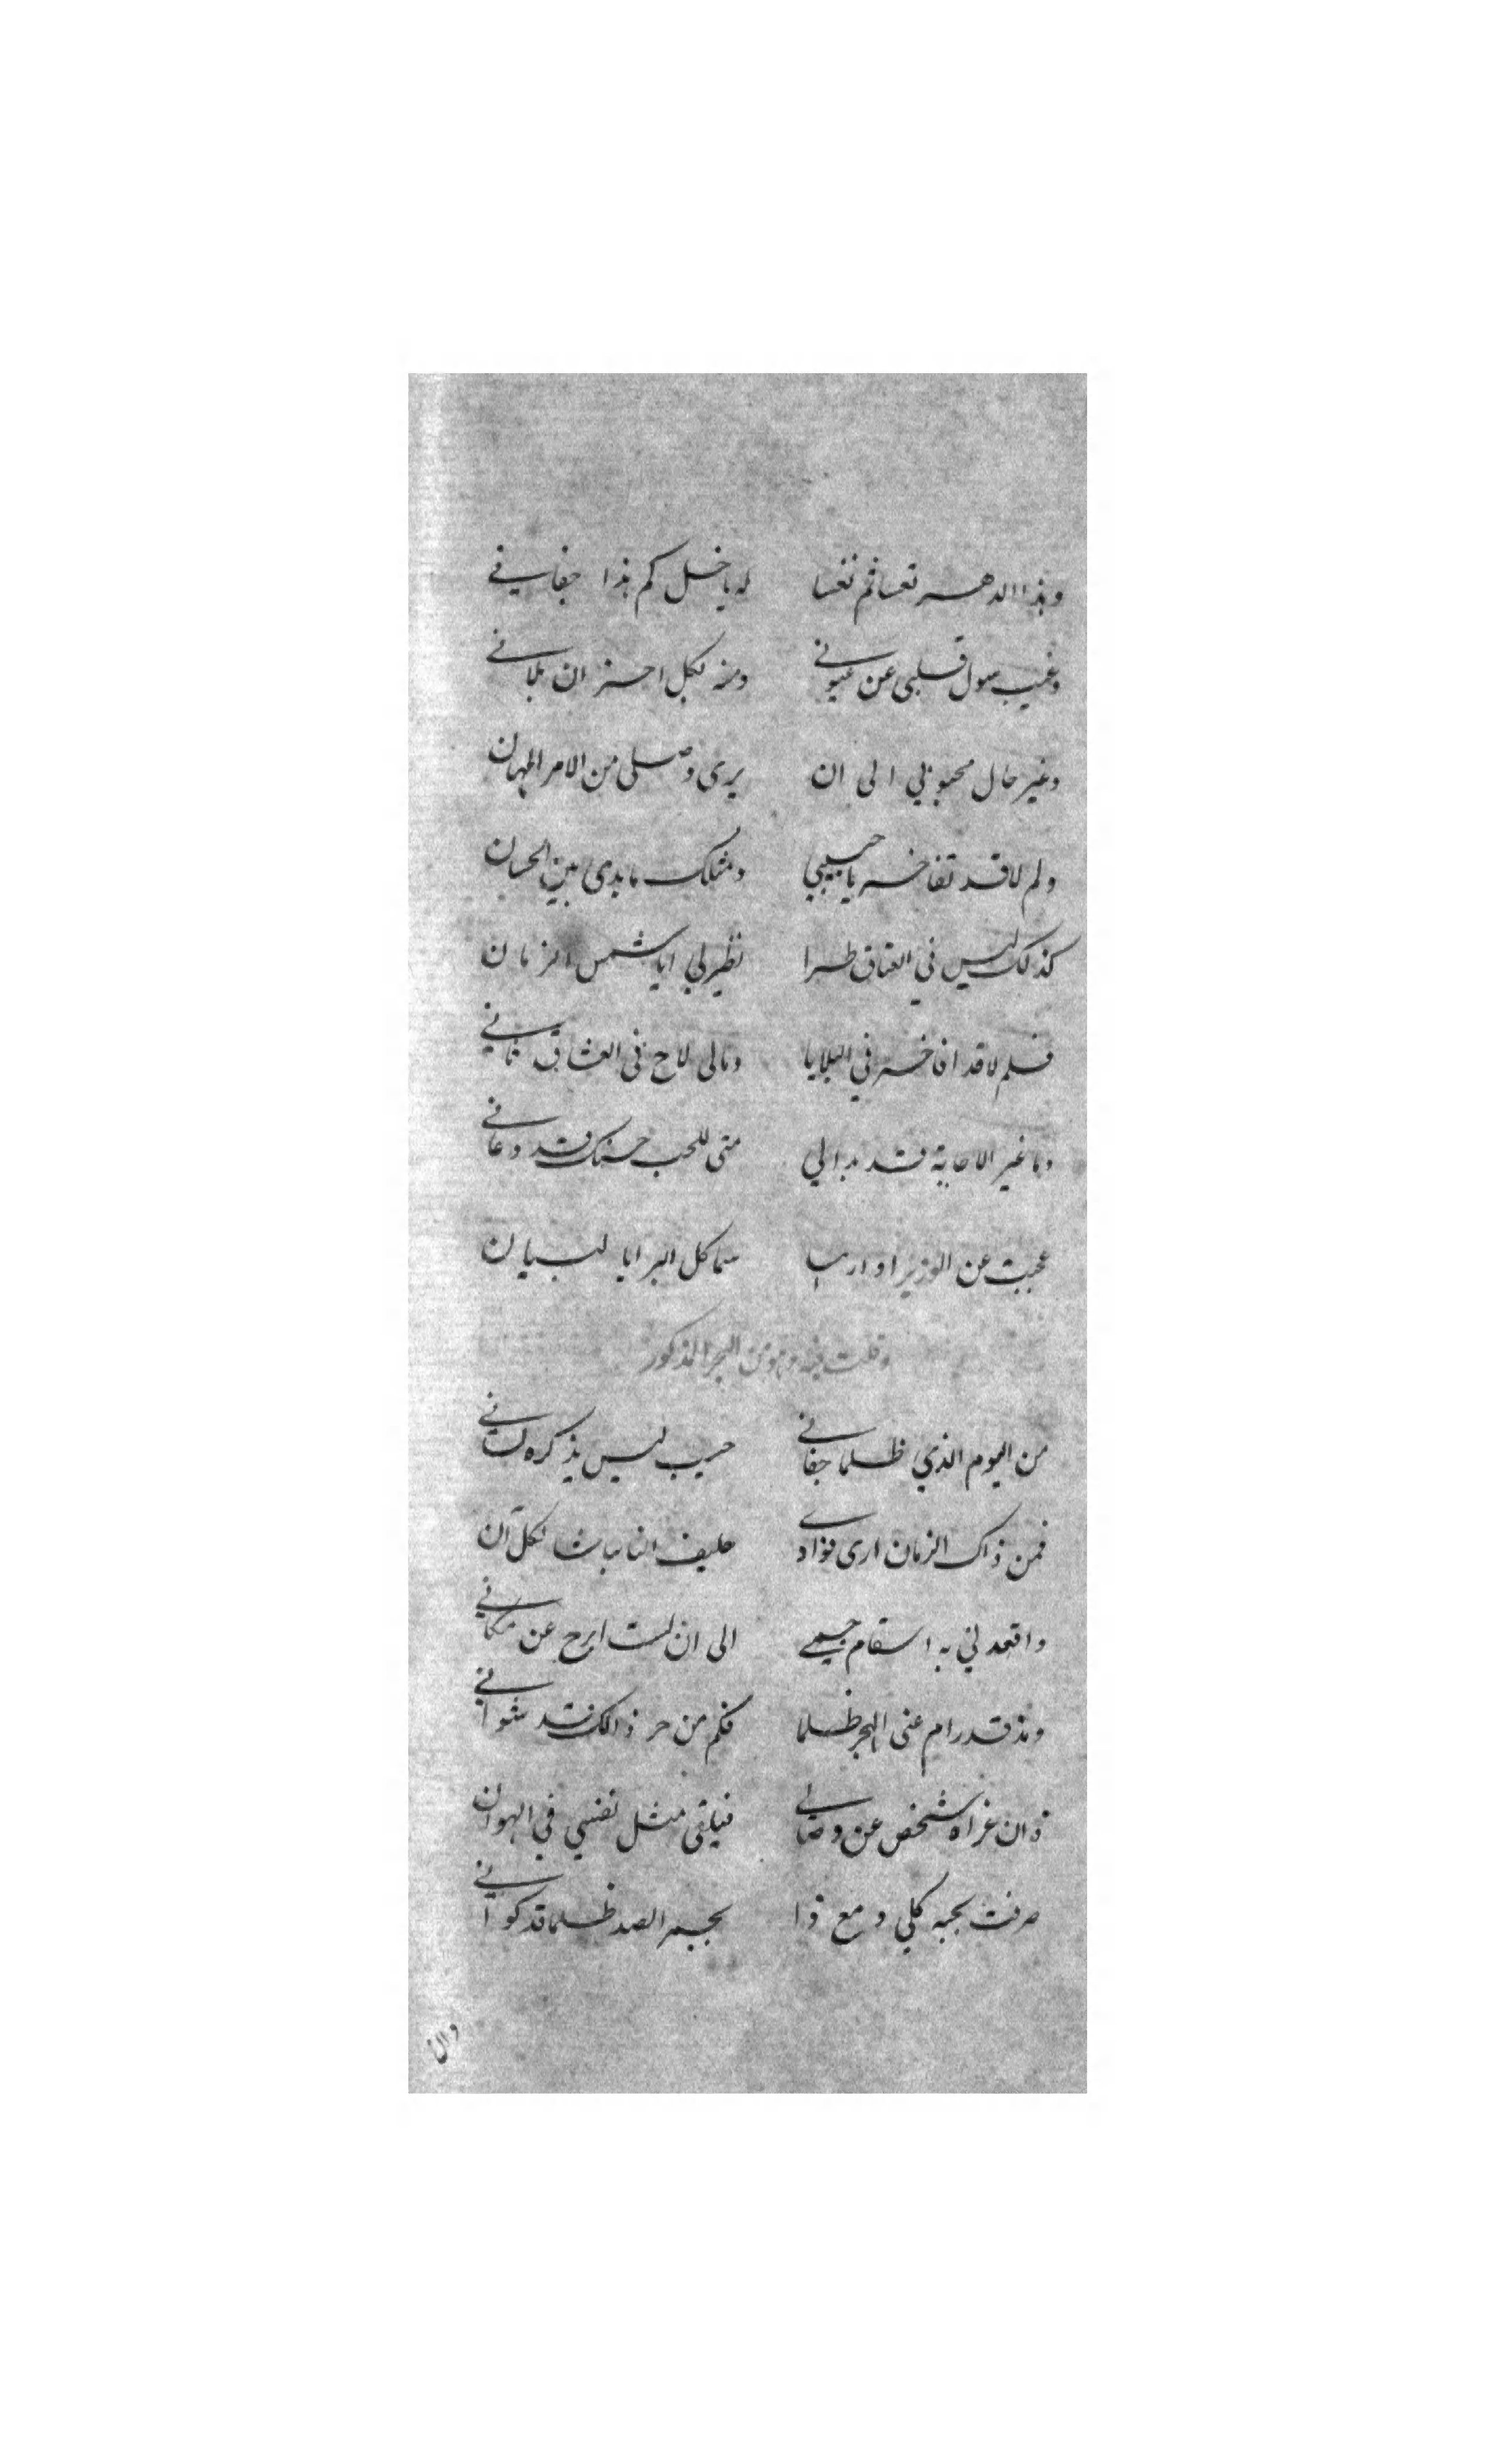 وهذا الدهر تعسا ثم تعسا له يا خل كم هذا جفاني
وغيب سول قلبى عن عيوني ومنه لكل احزان بلاني
وغير حال محبوبي الى ان يرى وصلى من الامر المهان
ولم لا قد تفاخر يا حبيبي ومثلك ما بدى بين الحسان
كذلك ليس في العشاق طرا نظير لي ايا شمس الزمان
فلم لا قد افاخر في البلايا ومالى لاح فى العشاق ثاني
وما غير الاجابة قد بدا لي متى للحب حسنك قد دعاني
عجبت عن الوزير او سما كل البرايا للبيان
وقلت فيه وهو من البحر المذكور
من اليوم الذي ظلما جفاني حبيب ليس يذكره لساني
فمن ذاك الزمان ارى فؤادي حليف النايبات لكل آن
واقعدني به اسقام جسمي الى ان لست ابرح عن مكاني
ومذ قد رام عنى الهجر ظلما فكم من حر ذالك قد شواني
وان غراه شخص عن وصالي فيلقى مثل نفسي في الهوان
صرفت بحبه كلي ومع ذا بجمر الصد ظلما قد كواني